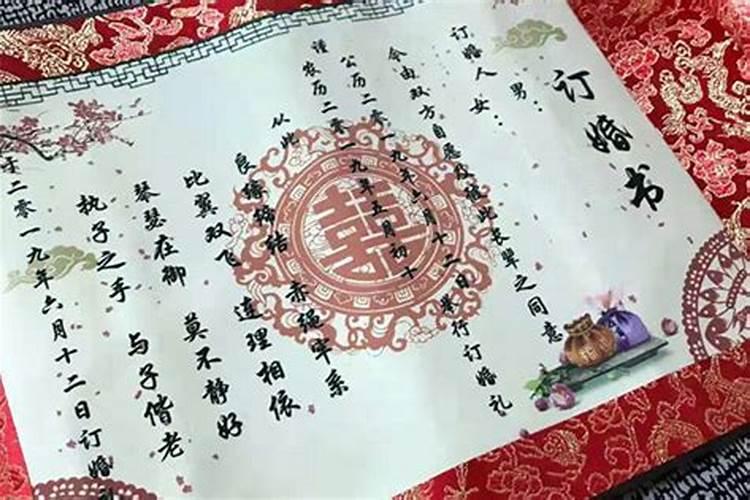 订婚书
订婚人 男：
女：
今由双方自愿及管此长辈之同意
公历二零一九年六月十二日举行订婚礼
谨农历二零一九年五月初十
从此
良缘缔结 赤绳牢系
比翼双飞 连理相依
琴瑟在御 莫不静好
执子之手 与子偕老
于二零一九年六月十二日订婚